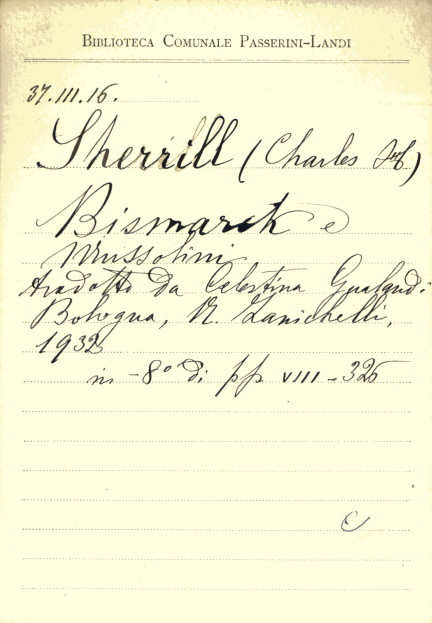 BIBLIOTECA COMUNALE PASSERINI-LANDI
37.III.16.
Sherrill (Charles
Bismarck e
Mussolini
tradotto da Celestina Gualandi.
Bologna, N. Zanichelli,
1932
in -8° di pp VIII - 326
C